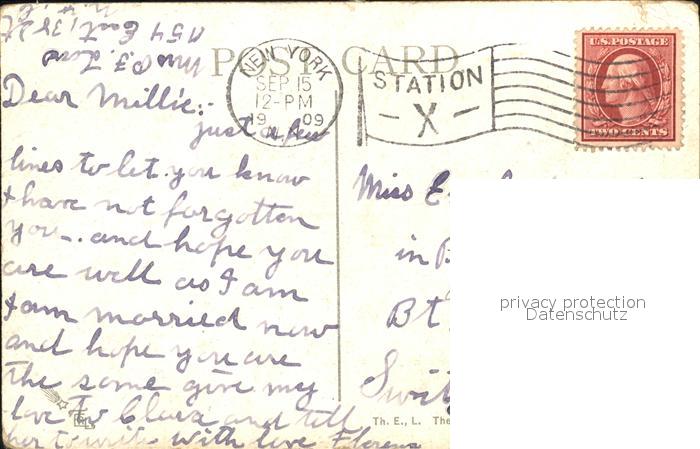 Mrs O. J.
1154 East, 38 St
N.Y. C.
POST CARD
NEW YORK
SEP 15
12-PM
1909
N.Y.
STATION
- X -
U.S. POSTAGE
TWO CENTS
Dear Millie:-
just a few
lines to let you know
I have not forgotten
you -. and hope you
are well as I am
I am married now
and hope you are
the same give my
love to Clara and tell
her to write with love Florence
Miss E.
in B
Bt
Swit
privacy protection
Datenschutz
Th. E., L. The